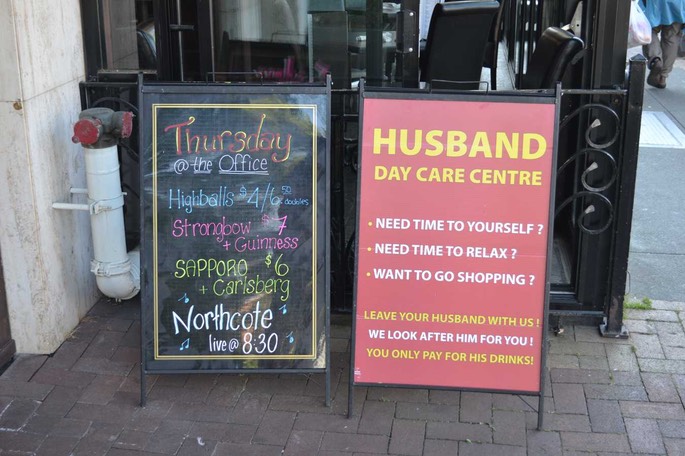 Thursday
@ the Office
Highballs $4/6.50 doubles
Strongbow $7
+ Guinness
SAPPORO $6
+ Carlsberg
Northcote
live @ 8:30
HUSBAND
DAY CARE CENTRE
• NEED TIME TO YOURSELF ?
• NEED TIME TO RELAX ?
• WANT TO GO SHOPPING ?
LEAVE YOUR HUSBAND WITH US !
WE LOOK AFTER HIM FOR YOU !
YOU ONLY PAY FOR HIS DRINKS!